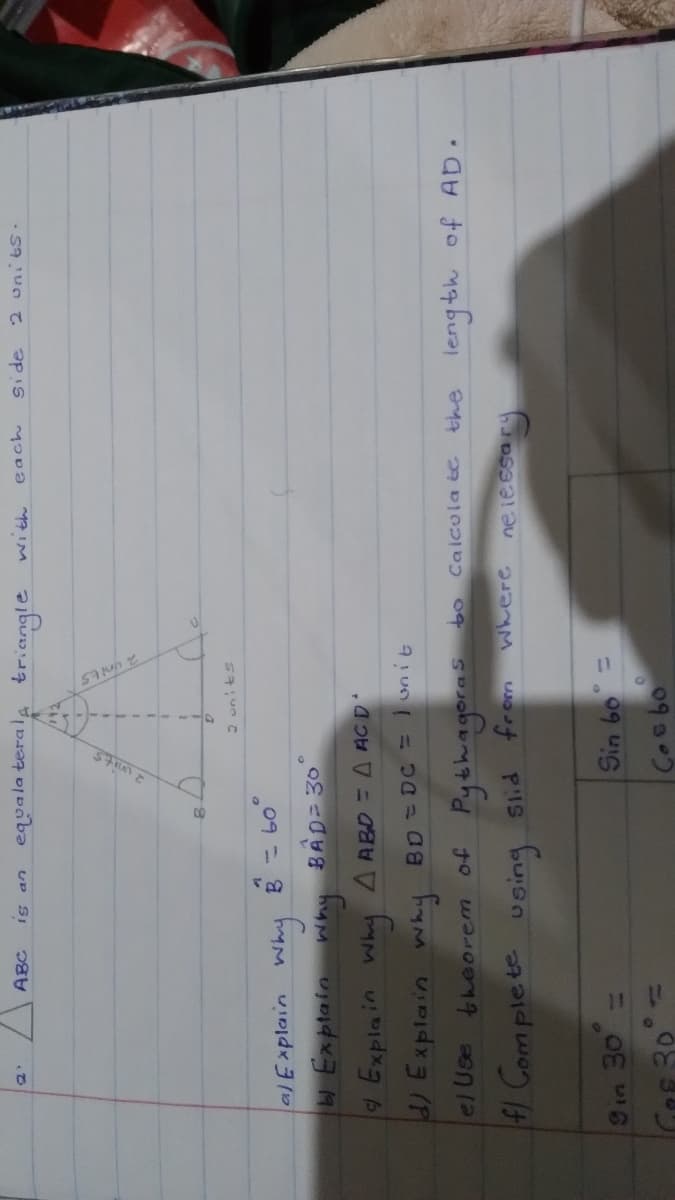 2. △ ABC is an equalateral triangle with each side 2 units.
A
1 2
2 units
2 units
B
D
C
2 units
a) Explain why B̂ = 60°
b) Explain why BÂD = 30°
c) Explain why △ ABD = △ ACD.
d) Explain why BD = DC = 1 unit
e) Use theorem of Pythagoras to calculate the length of AD.
f) Complete using slid from where nelessary
Sin 30° =
Sin 60° =
Cos 30° =
Cos 60°